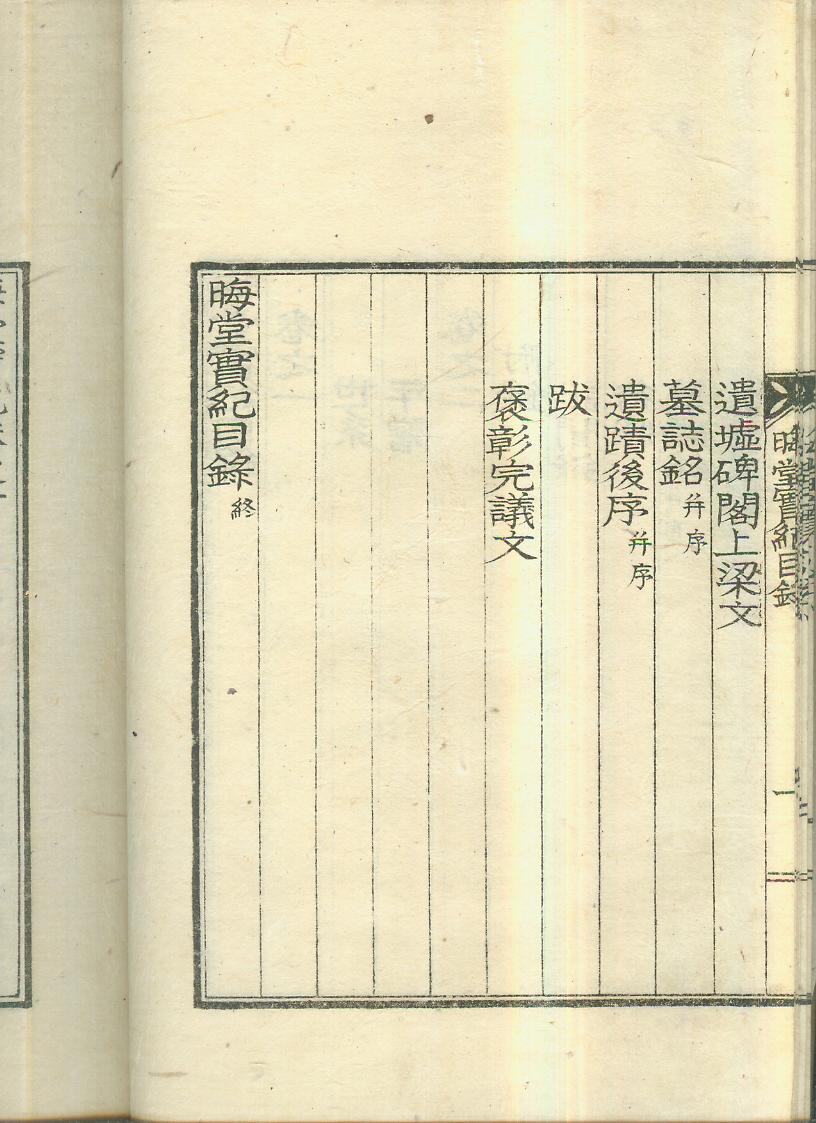 晦堂實紀目錄
一
遺墟碑閣上梁文
墓誌銘 幷序
遺蹟後序 幷序
跋
褒彰完議文
晦堂實紀目錄 終